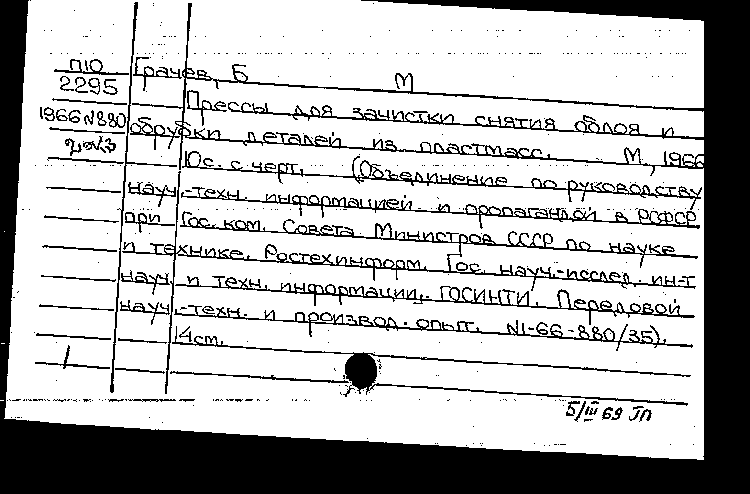 П10
2295
1966 N 880
Грачев, Б
М
Прессы для зачистки снятия облоя и
обрубки деталей из пластмасс. М., 1966
10с. с черт. (Объединение по руководству
науч.-техн. информацией и пропагандой в РСФСР
при Гос. ком. Совета Министров СССР по науке
и технике. Ростехинформ. Гос. науч.-исслед. ин-т
науч. и техн. информации. ГОСИНТИ. Передовой
науч.-техн. и производ. опыт. N1-66-880/35).
14см.
5/III 69 ГП